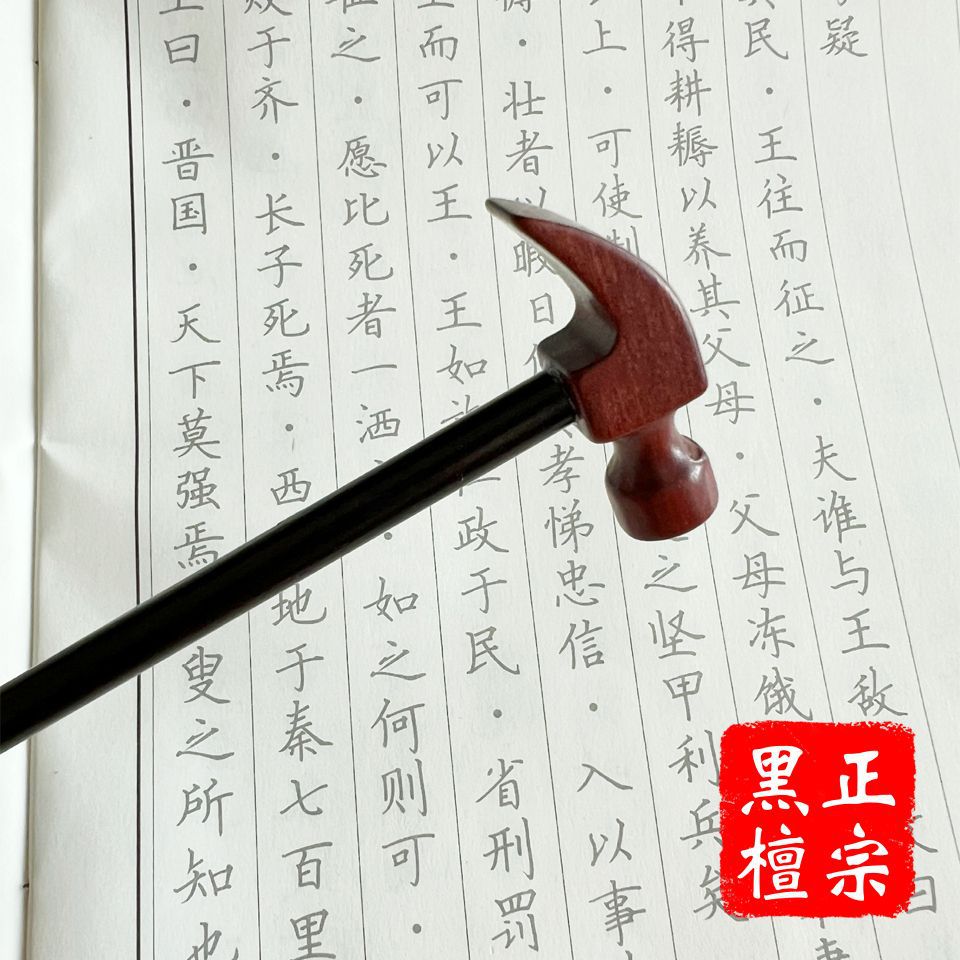 王曰·晋国·天下莫强焉 叟之所知也
败于齐·长子死焉·西 地于秦七百里
之·愿比死者一洒 · 如之何则可·
而可以王·王如 政于民·省刑罚
耨·壮者以暇日 孝悌忠信·入以事
上·可使制 之坚甲利兵矣
不得耕耨以养其父母·父母冻饿
其民·王往而征之·夫谁与王敌 曰
疑
正宗
黑檀